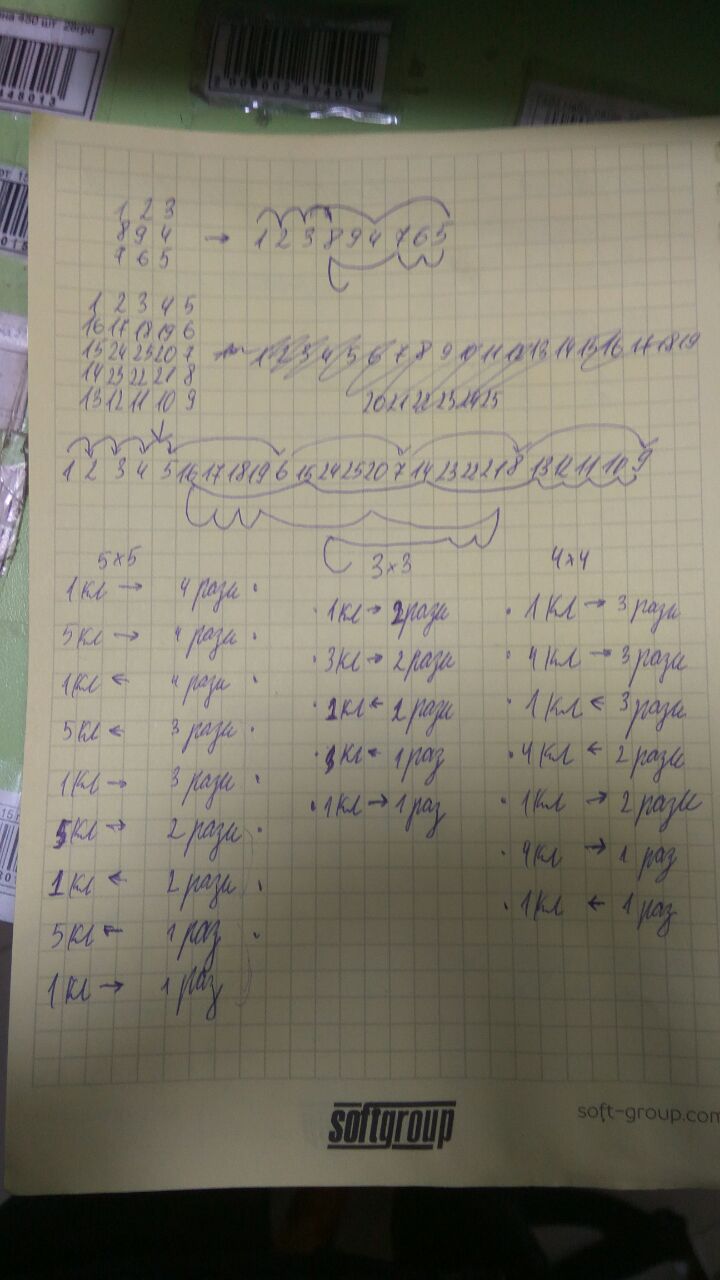 28грн
48013
2000002874010
1 2 3
8 9 4 → 1 2 3 8 9 4 7 6 5
7 6 5
1 2 3 4 5
16 17 18 19 6
15 24 25 20 7 → 1 2 3 4 5 6 7 8 9 10 11 12 13 14 15 16 17 18 19
14 23 22 21 8
13 12 11 10 9 20 21 22 23 24 25
1 2 3 4 5 16 17 18 19 6 15 24 25 20 7 14 23 22 21 8 13 12 11 10 9
5×5
1кл → 4 рази
5кл → 4 рази
1кл ← 4 рази
5кл ← 3 рази
1кл → 3 рази
5кл → 2 рази
1кл ← 2 рази
5кл ← 1 раз
1кл → 1 раз
3×3
1кл → 2 рази
3кл → 2 рази
1кл ← 2 рази
3кл ← 1 раз
1кл → 1 раз
4×4
1кл → 3 рази
4кл → 3 рази
1кл ← 3 рази
4кл ← 2 рази
1кл → 2 рази
4кл → 1 раз
1кл ← 1 раз
softgroup
soft-group.com